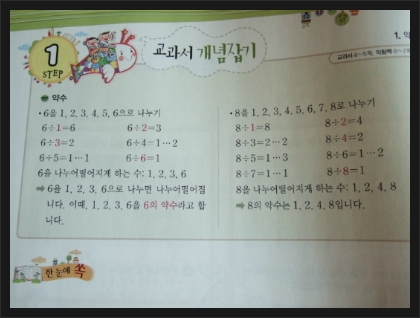 1
STEP
교과서 개념잡기
1. 약
교과서 6~8쪽, 익힘책 6~7
약수
• 6을 1, 2, 3, 4, 5, 6으로 나누기
6÷1=6 6÷2=3
6÷3=2 6÷4=1…2
6÷5=1…1 6÷6=1
6을 나누어떨어지게 하는 수: 1, 2, 3, 6
⇒ 6을 1, 2, 3, 6으로 나누면 나누어떨어집
니다. 이때, 1, 2, 3, 6을 6의 약수라고 합
니다.
• 8을 1, 2, 3, 4, 5, 6, 7, 8로 나누기
8÷1=8 8÷2=4
8÷3=2…2 8÷4=2
8÷5=1…3 8÷6=1…2
8÷7=1…1 8÷8=1
8을 나누어떨어지게 하는 수: 1, 2, 4, 8
⇒ 8의 약수는 1, 2, 4, 8입니다.
한눈에 쏙